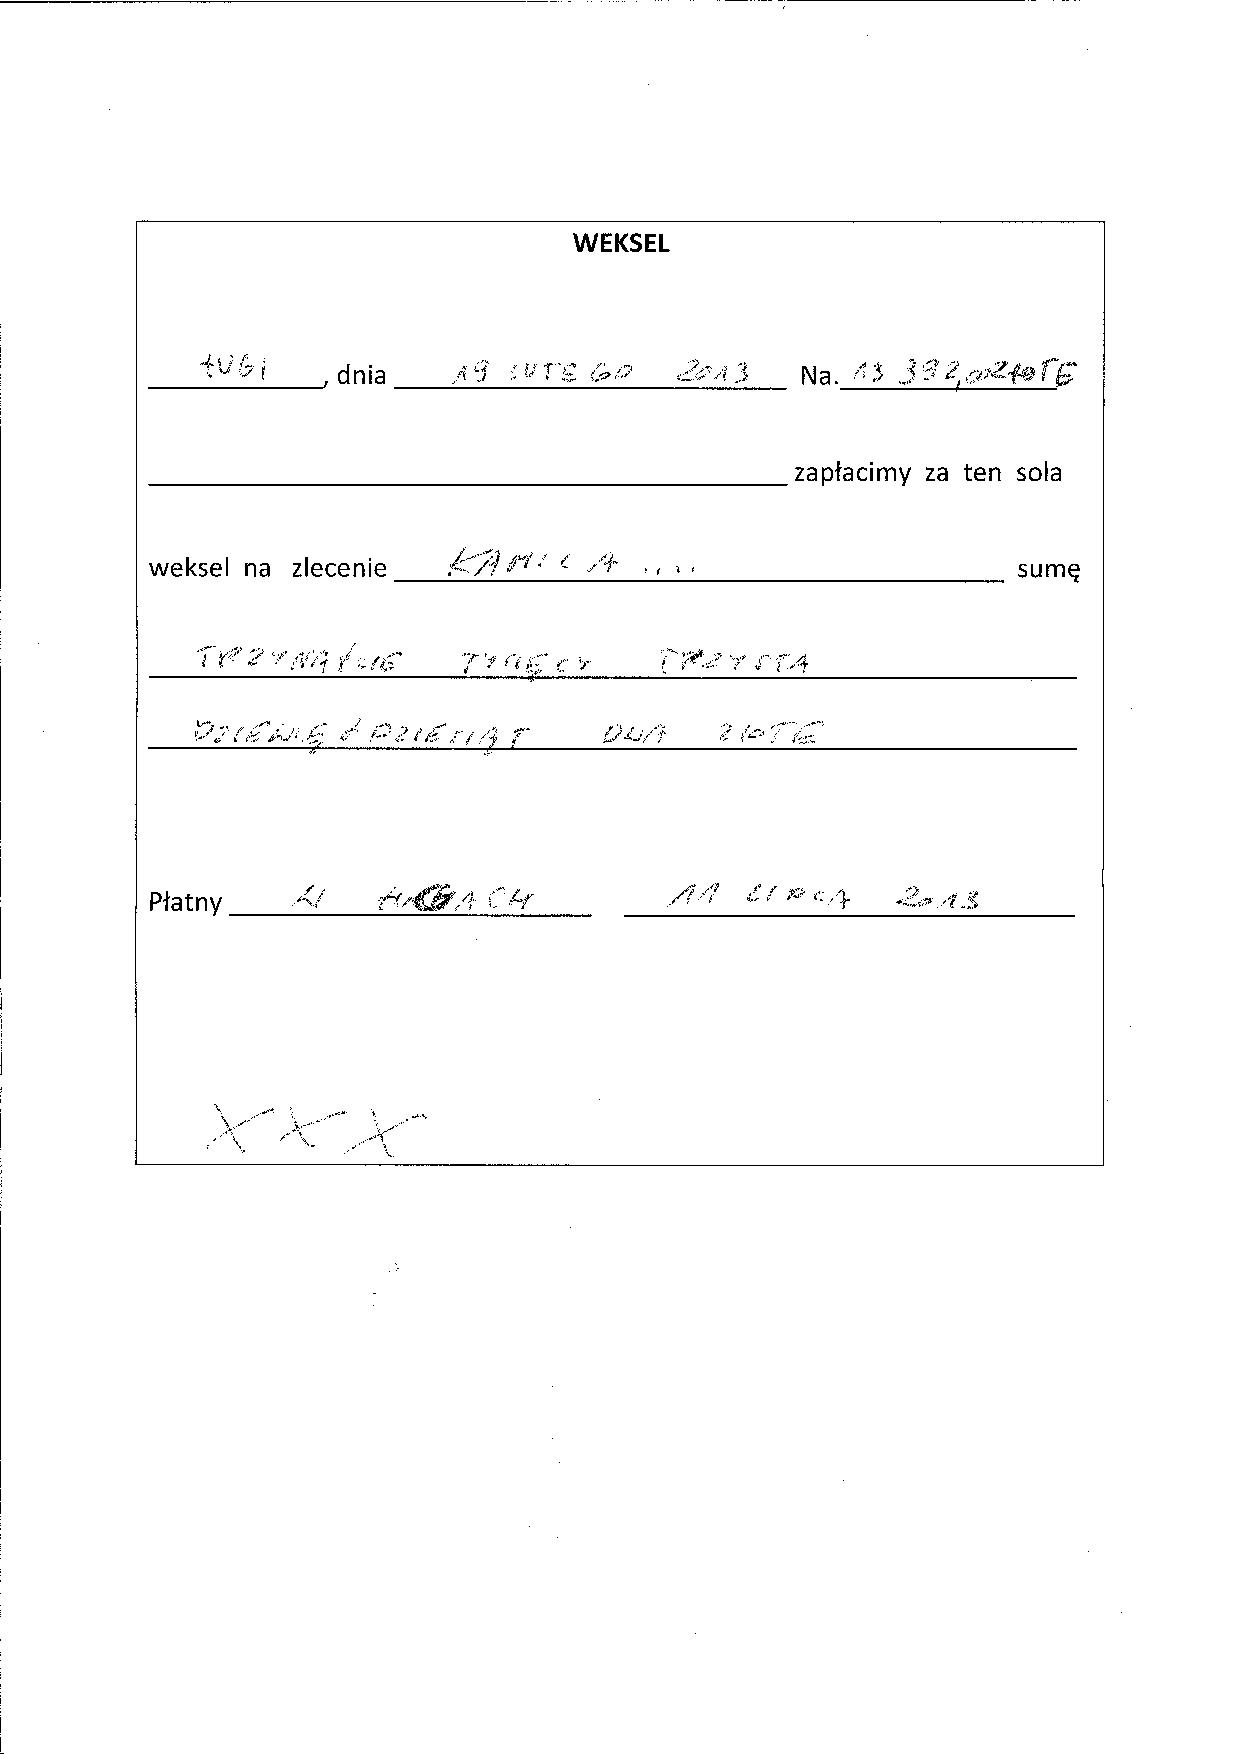 WEKSEL
ŁUGI, dnia 19 LUTEGO 2013 Na. 13 392,00 ZŁOTE
zapłacimy za ten sola
weksel na zlecenie KAMILA .... sumę
TRZYNAŚCIE TYSIĘCY TRZYSTA
DZIEWIĘĆDZIESIĄT DWA ZŁOTE
Płatny W 11 LIPCA 2013
XXX